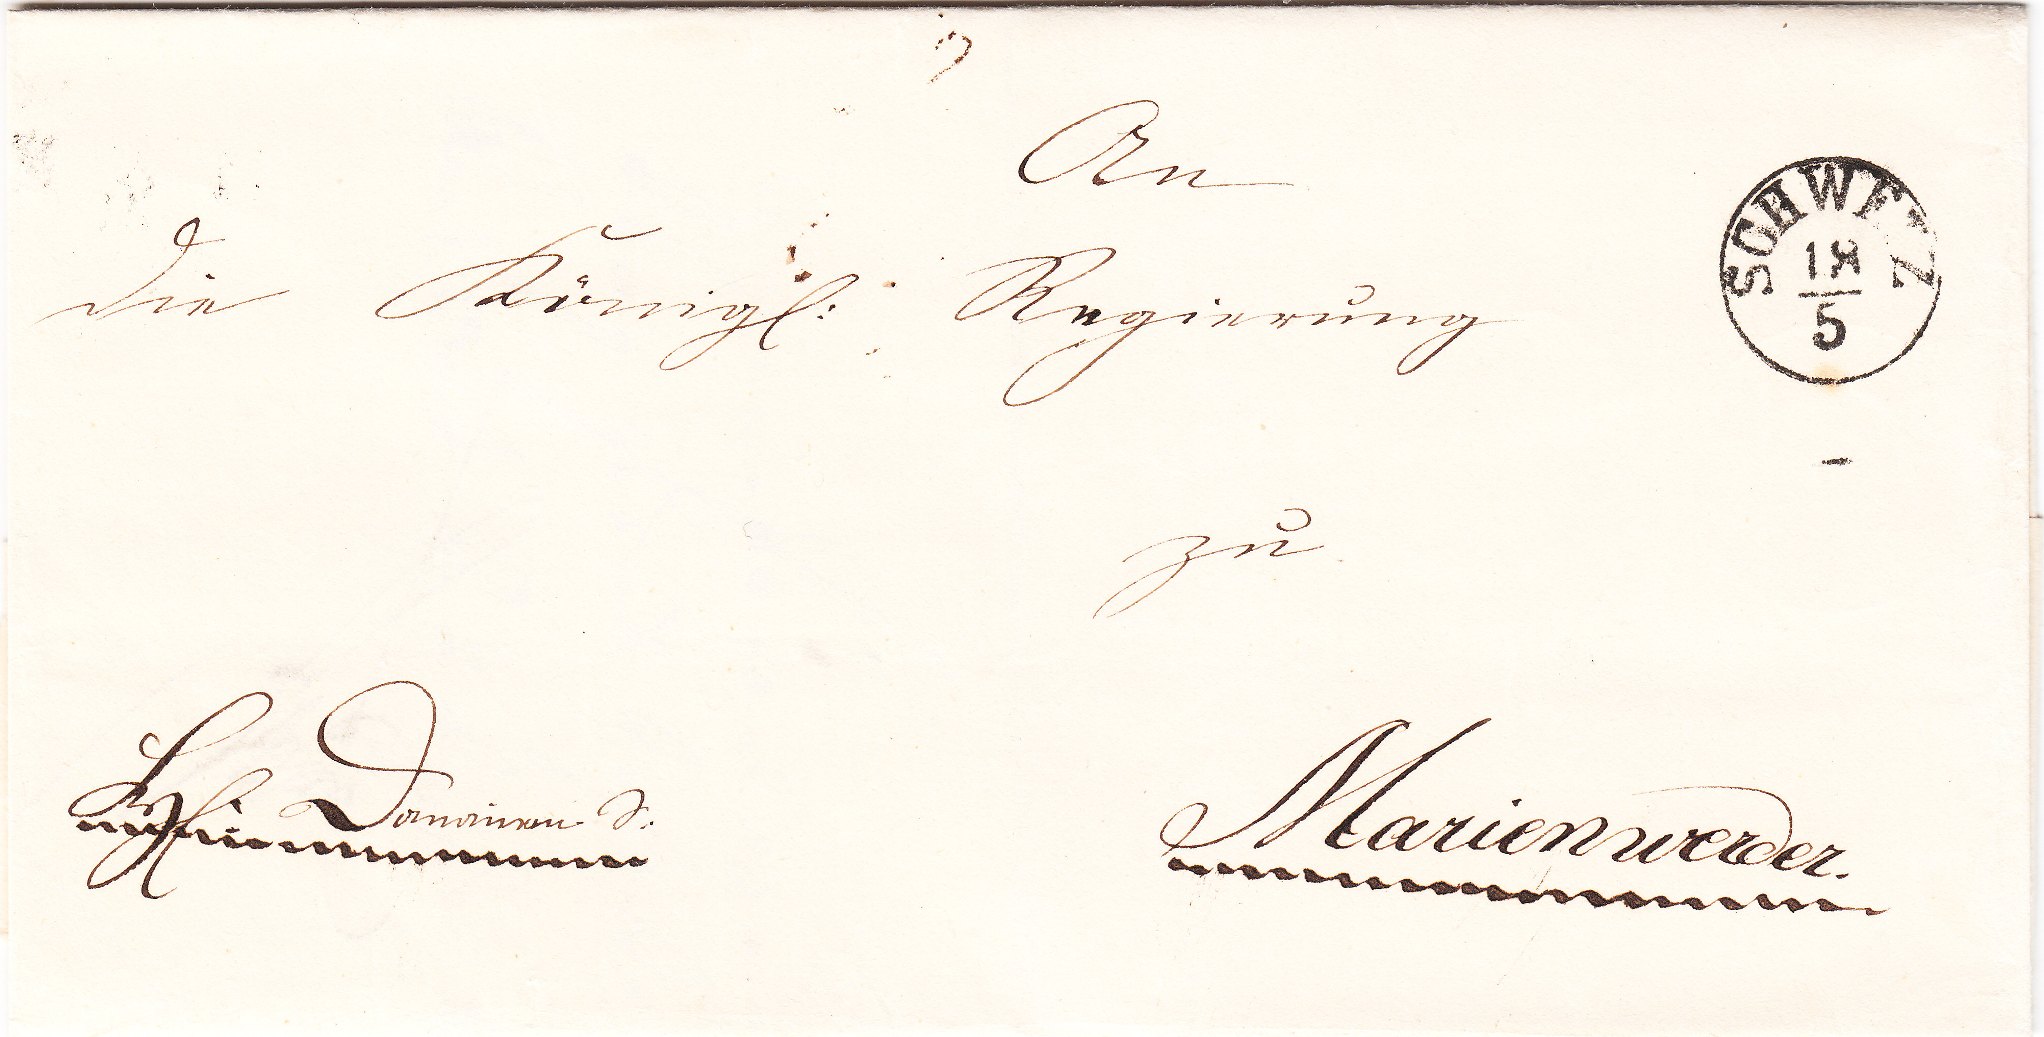 An
die Königl: Regierung
SCHWETZ
18
5
zu
Kgl: Domainen S:
Marienwerder.